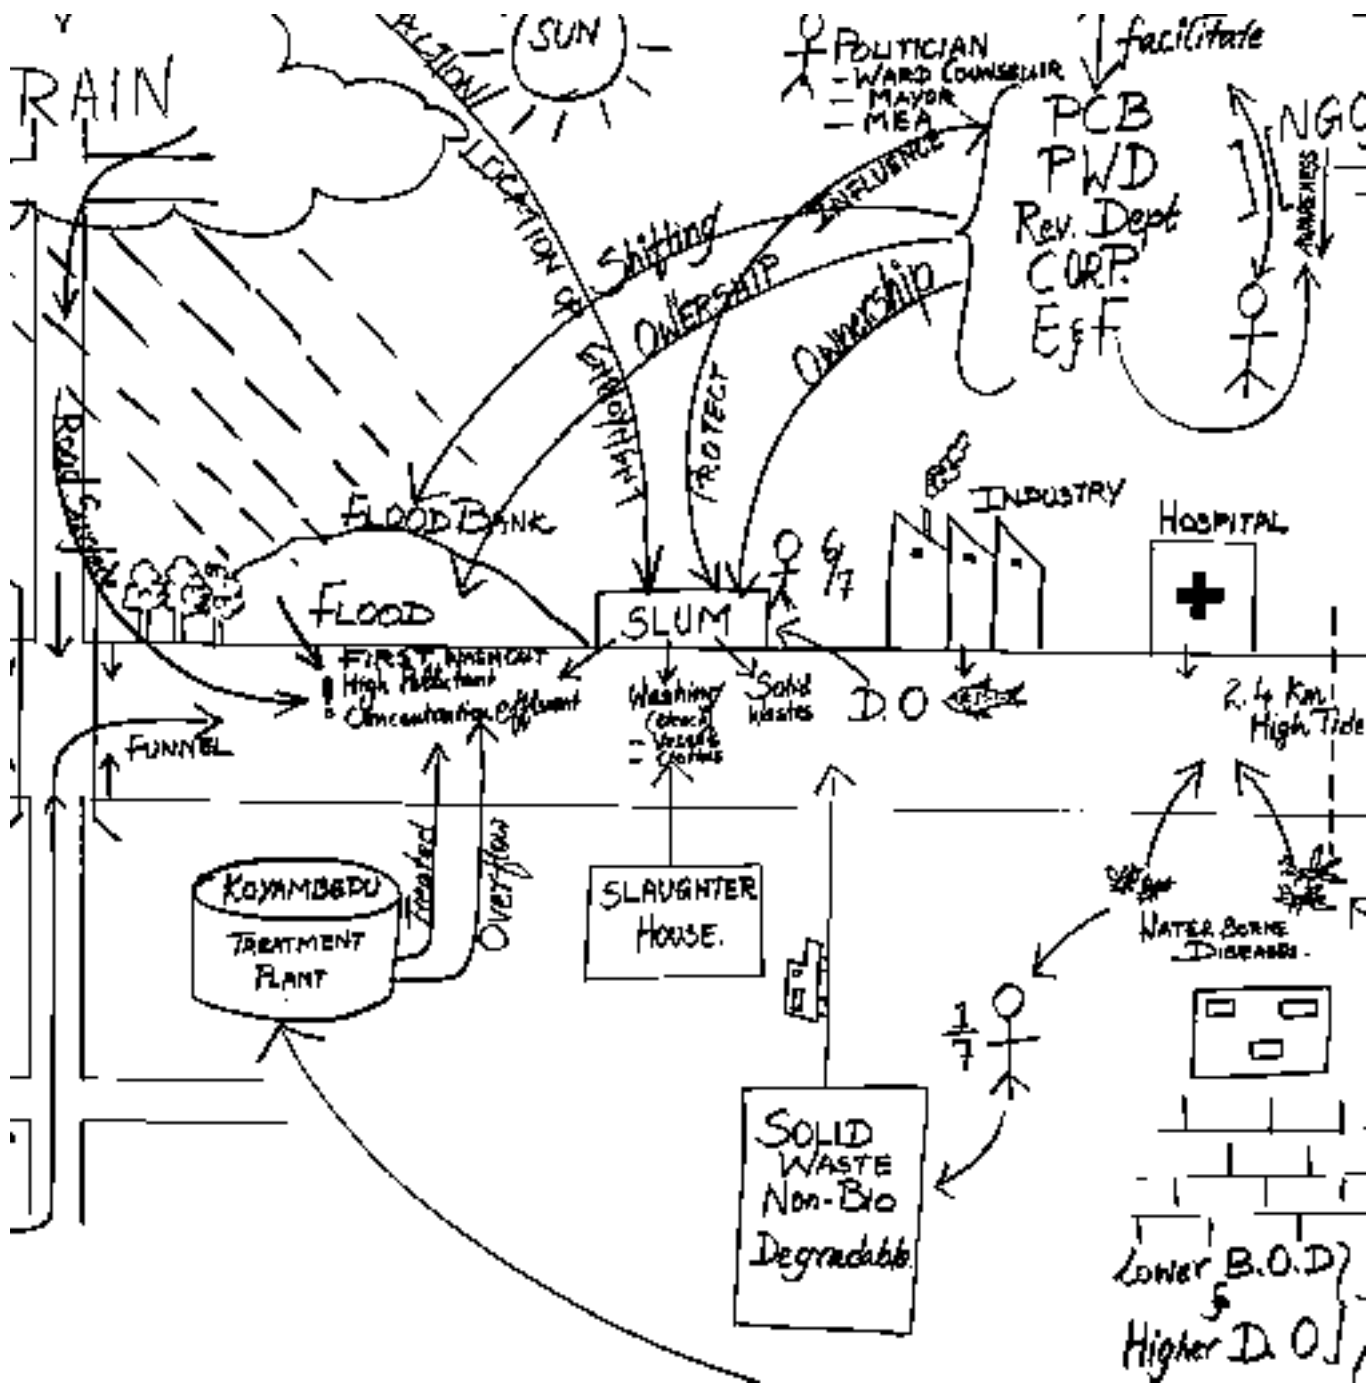 RAIN
ACTION
LOCATION &
SUN
POLITICIAN
- WARD COUNSELLOR
- MAYOR
- MEA
facilitate
PCB
PWD
Rev. Dept
CORP.
E & F
NGO
AWARENESS
INFLUENCE
Shifting
OWERSHIP
Ownership
PROTECT
FLOOD BANK
FLOOD
SLUM
6/7
INDUSTRY
HOSPITAL
Road
FIRST WASHOUT
High Pollutant
Concentration effluent
Washing
- Vessels
- Clothes
Solid
Wastes
D.O
2.4 Km
High Tide
FUNNEL
Treated
Overflow
KOYAMBEDU
TREATMENT
PLANT
SLAUGHTER
HOUSE.
WATER BORNE
DISEASES.
1/7
SOLID
WASTE
Non-Bio
Degradable.
Lower B.O.D
&
Higher D.O